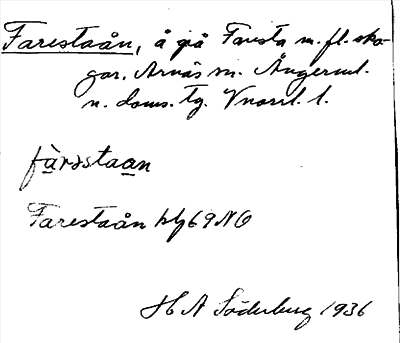 Farestaån, å på Faresta m. fl. sko-
gar. Arnäs sn. Ångerml.
n. doms. tg. Vnorrl. l.
fàrəstaan
Farestaån blg 69 NO
H A Söderberg 1936